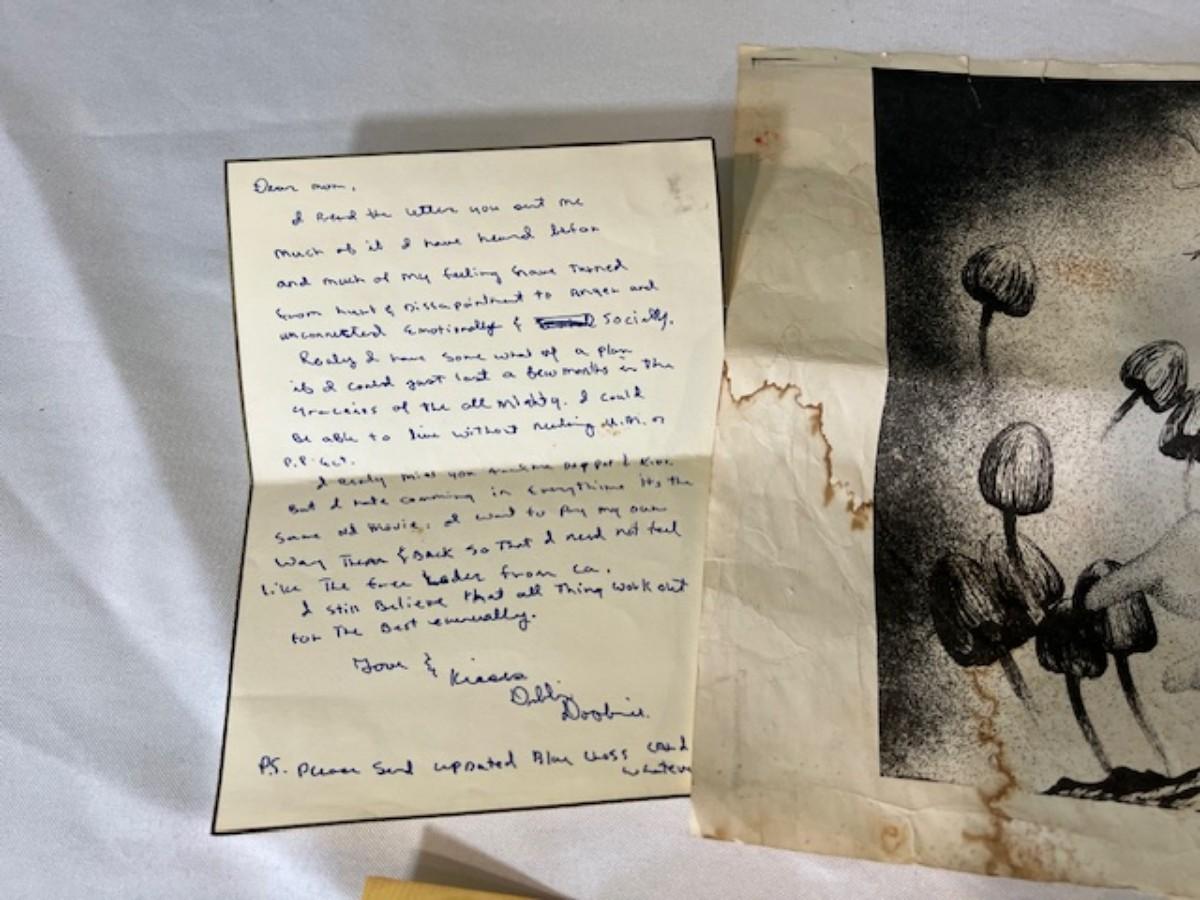 Dear mom,
I Read the letter you sent me
much of it I have heard before
and much of my feeling have turned
from hurt & Dissapointment to Anger and
unconnected Emotionally & Socially.
Realy I have some what of a plan
if I could just last a few months in the
of the all mighty. I could
Be able to live without needing M.A. or
P.P.
I really miss you
But I hate comming in Everytime its the
same old movie. I want to Pay my own
way There & BACK so That I need not feel
Like The free from Ca.
I still Believe that all Thing work out
for The Best eventually.
Love &
Kisses
P.S. Please Send updated Blue Cross Card